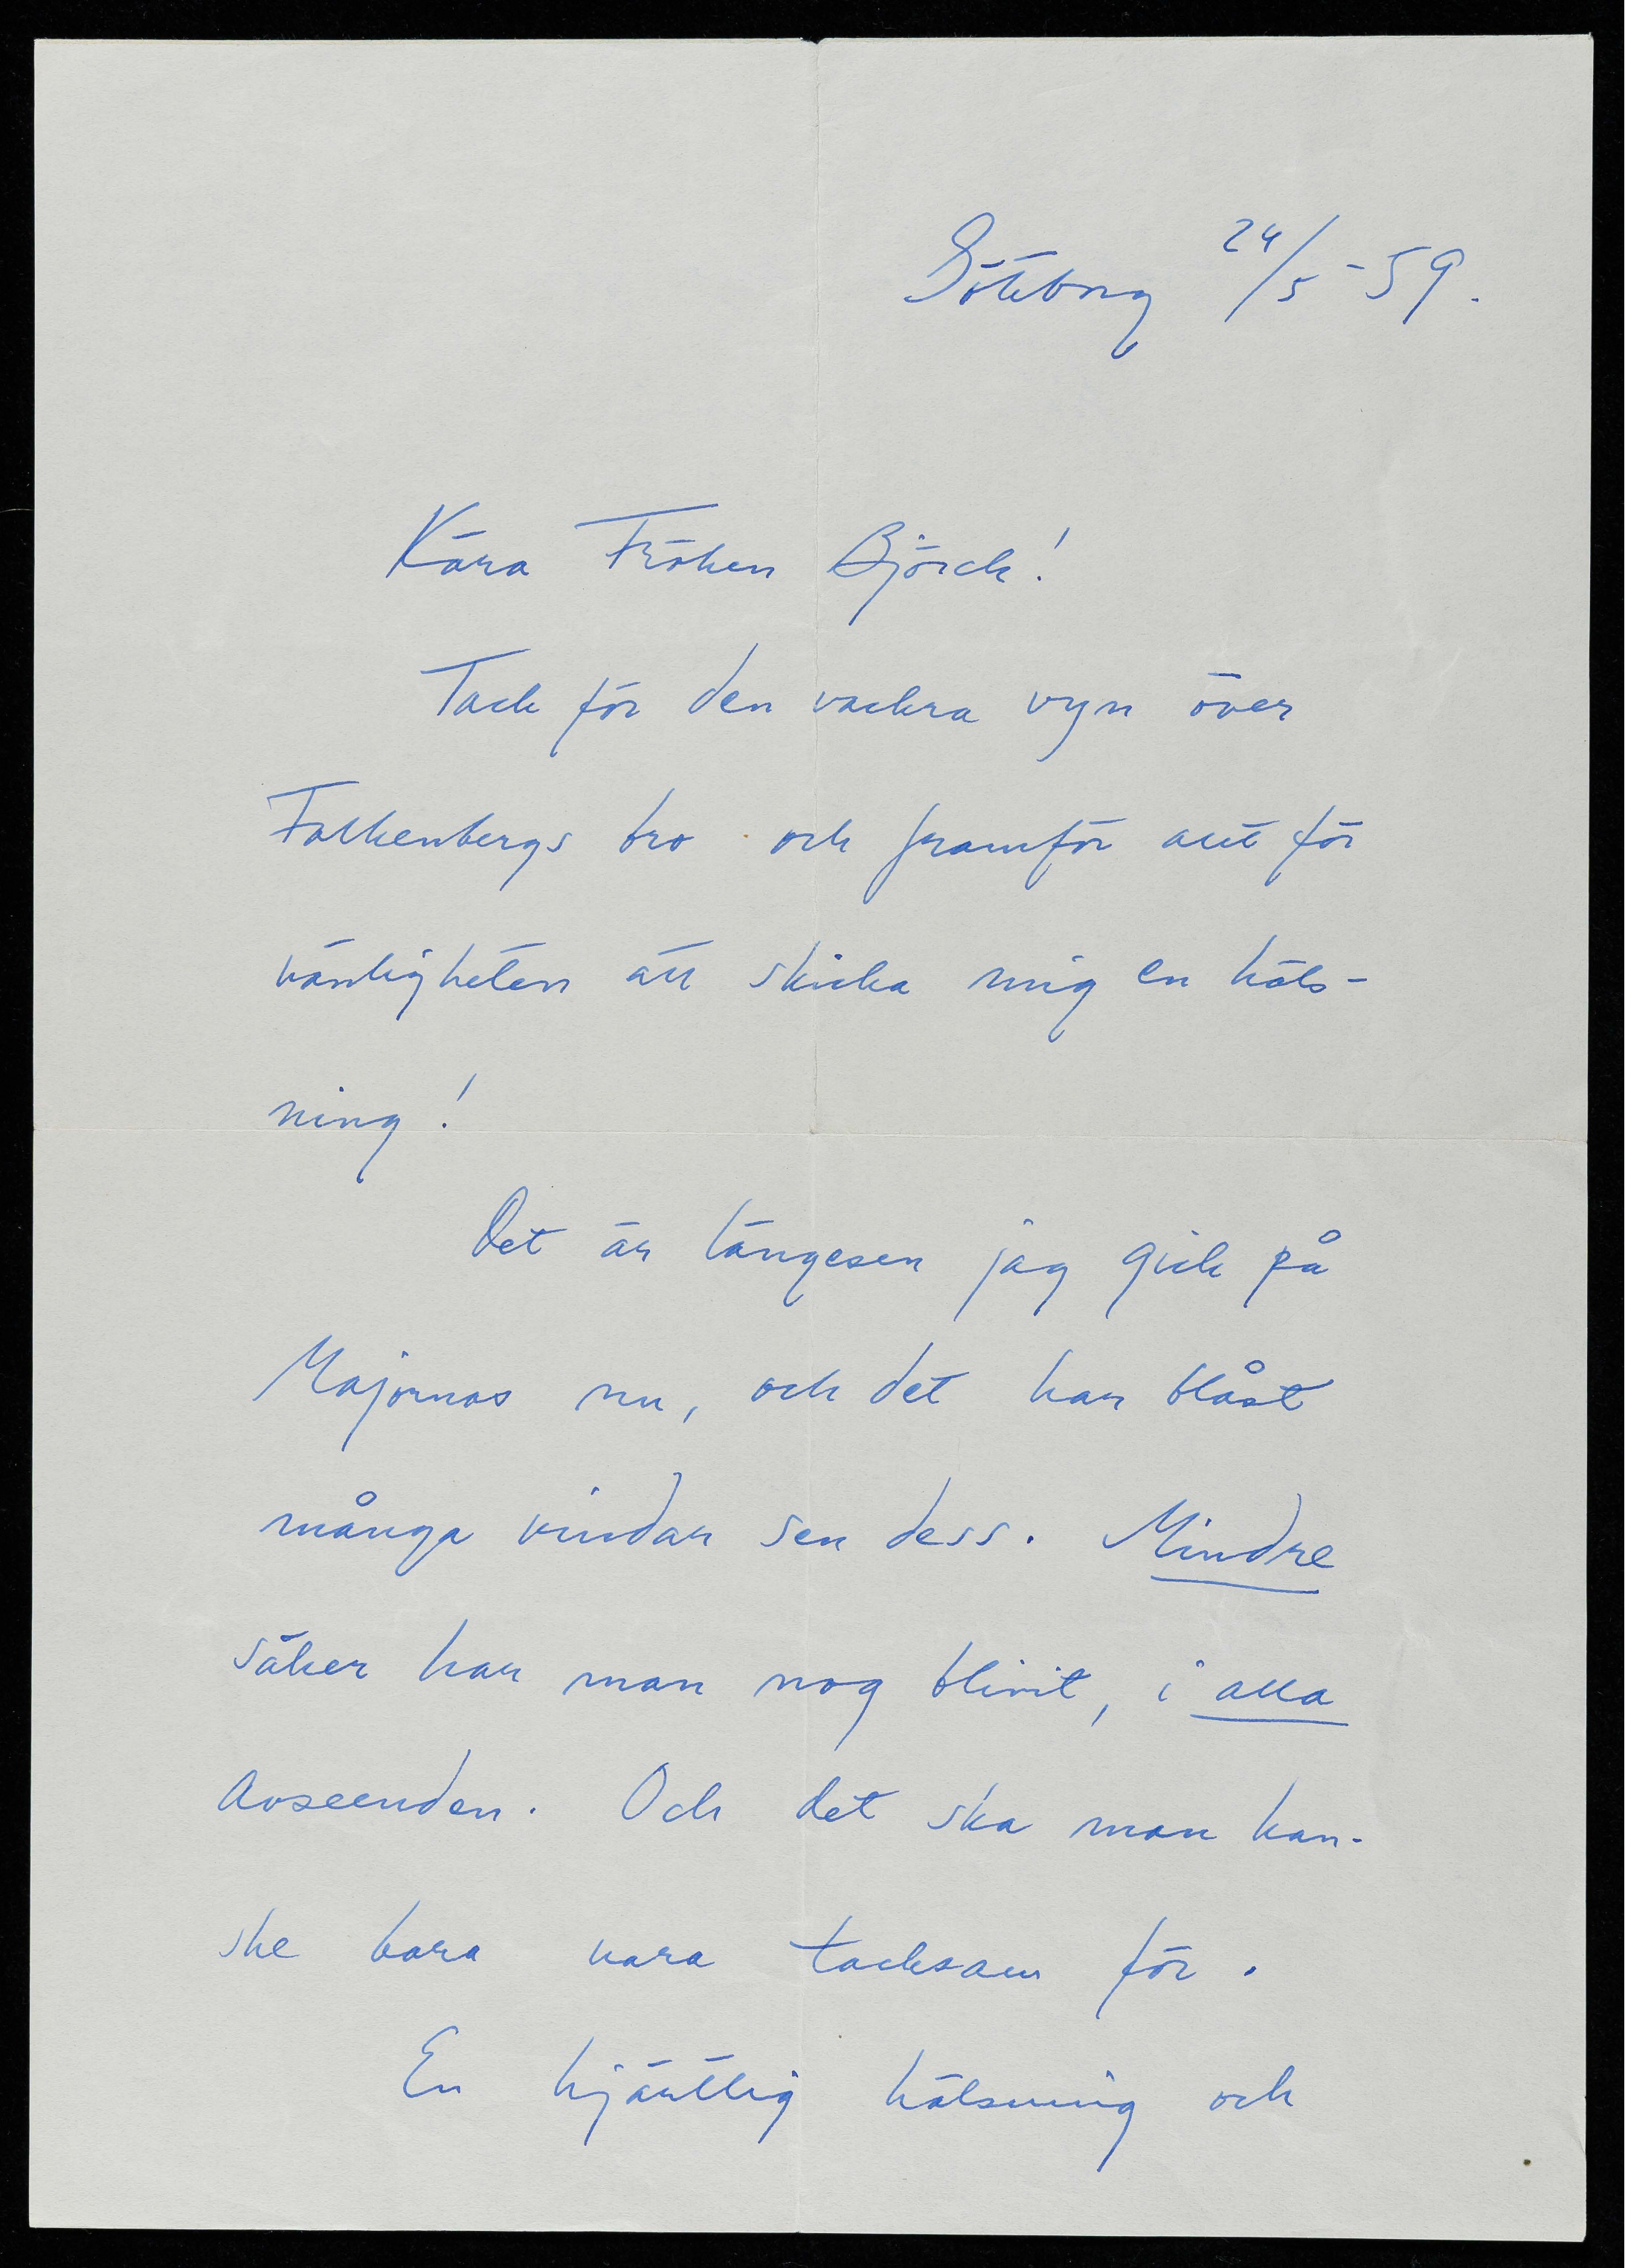 Göteborg 24/5 - 59.
Kära Fröken Björck!
Tack för den vackra vyn över
Falkenbergs bro och framför allt för
vänligheten att skicka mig en häls-
ning!
Det är längesen jag gick på
Majornas nu, och det har blåst
många vindar sen dess. Mindre
säker har man nog blivit, i alla
avseenden. Och det ska man kan-
ske bara vara tacksam för.
En hjärtlig hälsning och